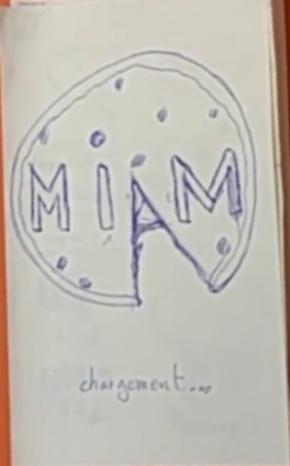 MIAM
chargement...